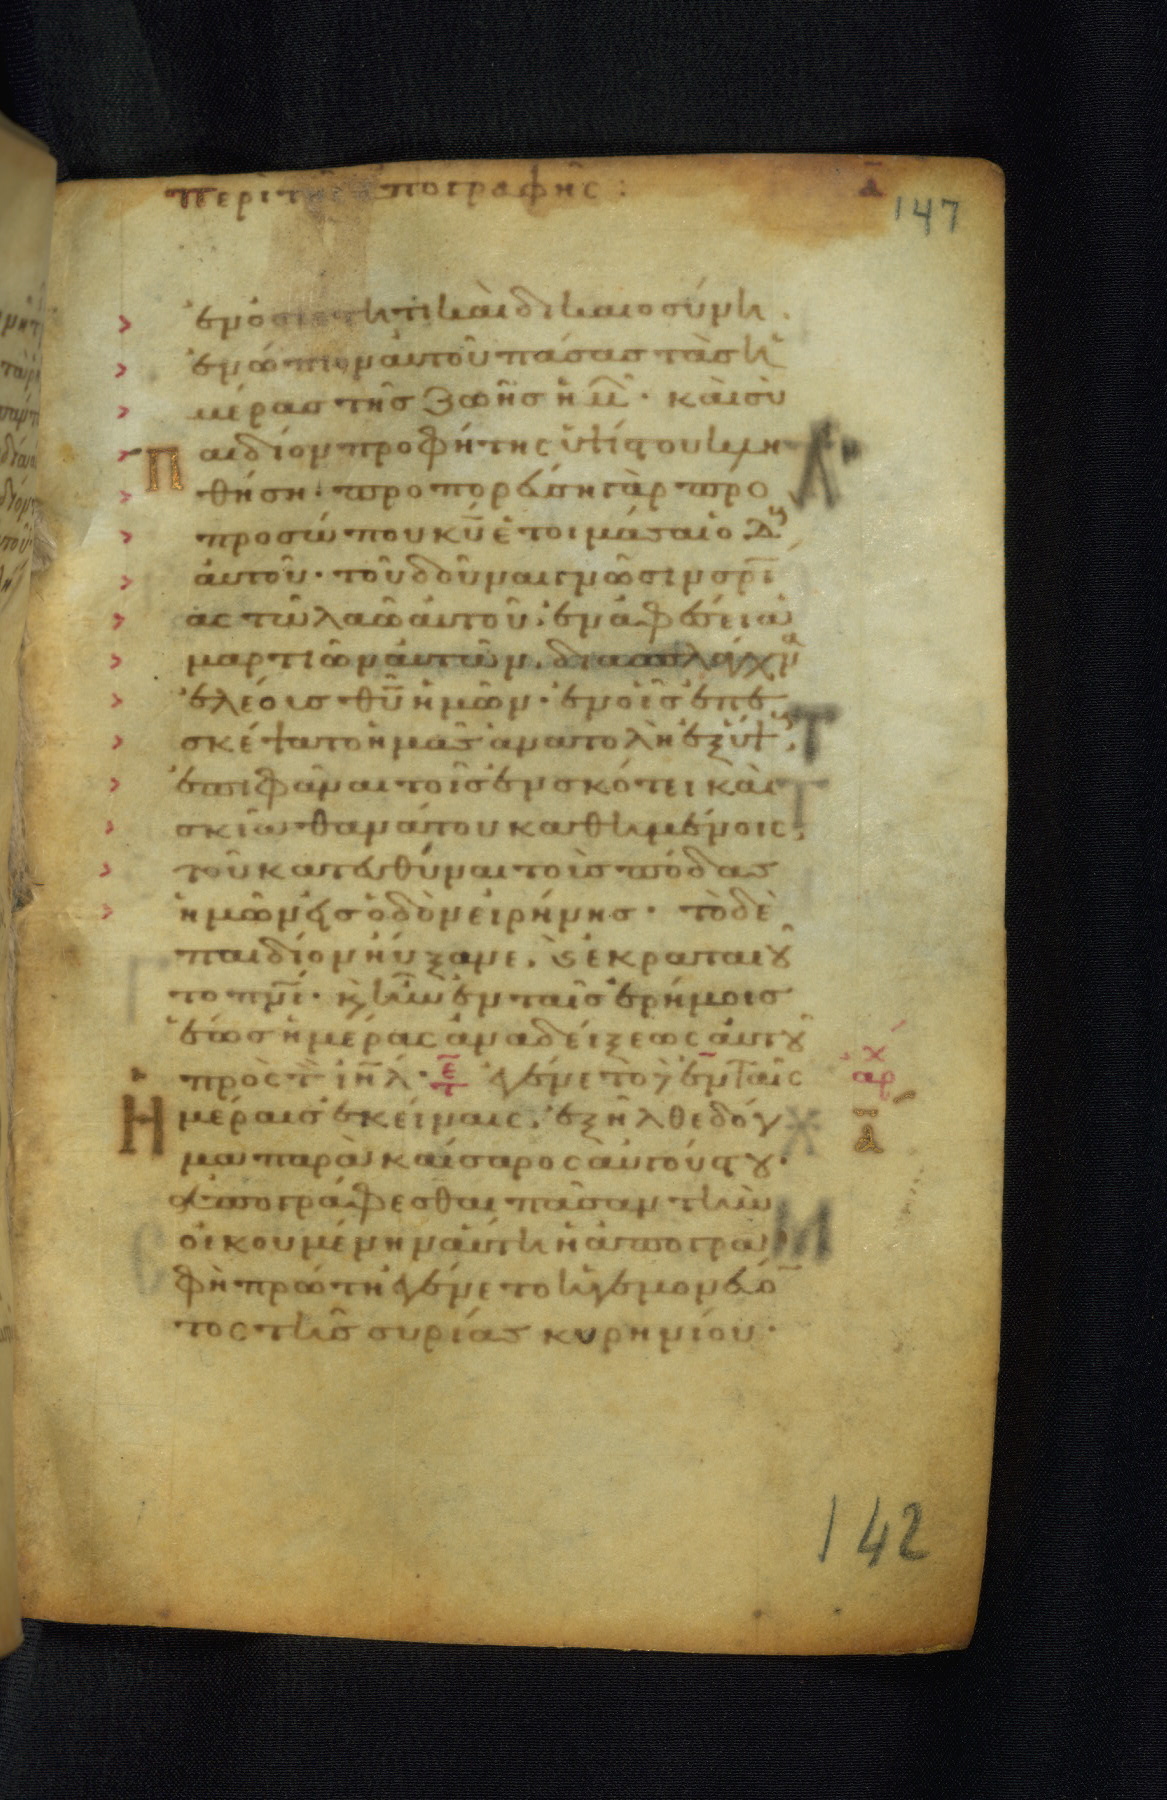 περὶ τῆς ἀπογραφῆς :
ᾱ
147
ἐν ὁσιότητι καὶ δικαιοσύνη .
ἐνώπιον αὐτοῦ πάσας τὰς ἡ
μέρας τῆς ζωῆς ἡμ̅ · καὶ σὺ
παιδίον προφήτης ὑψίστου κλη
θήση · προπορεύση γὰρ πρὸ
προσώπου κ̅υ ἑτοιμάσαι ὁδ
αὐτοῦ · τοῦ δοῦναι γνῶσιν σρ̅ι
ας τῶ λαῶ αὐτοῦ · ἐν ἀφέσει ἁ
μαρτιῶν αὐτῶν . δια σπλάγχν
ἐλέους θ̅υ ἡμῶν · ἐν οἷς ἐπε
σκέψατο ἡμᾶς ἀνατολὴ ἐξ ὕψ
ἐπιφᾶναι τοῖς ἐν σκότει καὶ
σκιᾶ θανάτου καθημένοις .
τοῦ κατευθύναι τοὺς πόδας
ἡμῶν εἰς ὁδὸν εἰρήνης · τὸ δὲ
παιδίον ηὔξανε . ϗ ἐκραταιοῦ
το πν̅ι · ϗ ἦν ἐν ταῖς ἐρήμοις
ἕως ἡμέρας ἀναδείξεως αὐτοῦ
πρὸς τ ι̅η̅λ · τε ἐγένετο ἐν ταῖς
αρχ
ἡμέραις ἐκείναις . ἐξῆλθε δόγ
ᾱ
μα παρὰ καίσαρος αὐγούστου ·
ἀπογράφεσθαι πᾶσαν τὴν
οἰκουμένην αὕτη ἡ ἀπογρα
φὴ πρώτη ἐγένετο ἡγεμονεύο̅
τος τῆς συρίας κυρηνίου ·
142